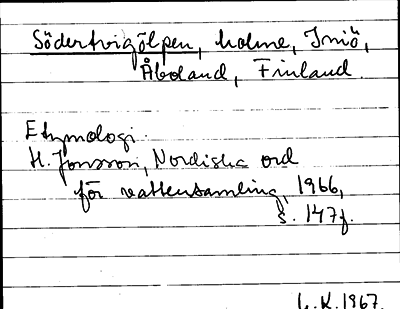 Södertvigölpen, holme, Iniö,
Åboland, Finland.
Etymologi.
H. Jonsson, Nordiska ord
för vattensamling, 1966,
s. 147f.
L.K. 1967.